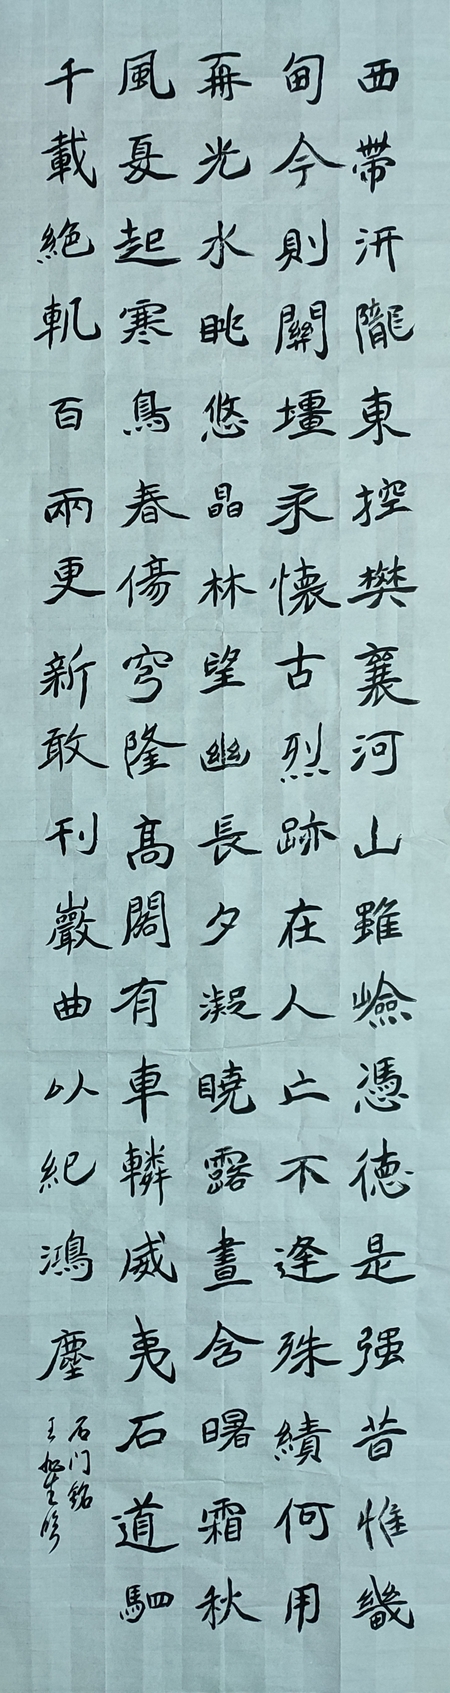 西帶汧隴東控樊襄河山雖嶮憑德是强昔惟畿
甸今則關壃永懷古烈跡在人亡不逢殊績何用
再光水眺悠晶林望幽長夕凝曉露晝含曙霜秋
風夏起寒鳥春傷穹隆高閣有車轔威夷石道駟
千載絶軌百兩更新敢刊巖曲以紀鴻塵
石门铭
王